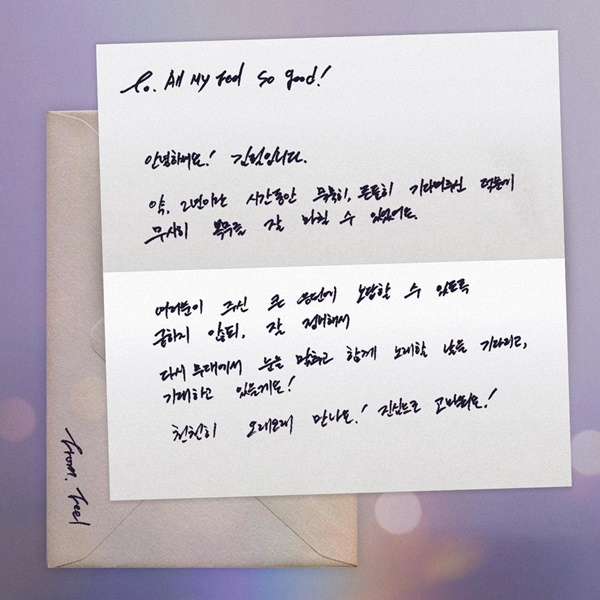 To. All My Feel So Good!
안녕하세요! 김필입니다.
약, 2년이라는 시간동안 묵묵히, 든든히 기다려주신 덕분에
무사히 복무를 잘 마칠 수 있었어요.
여러분이 주신 큰 응원에 보답할 수 있도록
급하지 않되, 잘 정비해서
다시 무대에서 눈을 맞추고 함께 노래할 날을 기다리고,
기대하고 있을게요!
천천히 오래오래 만나요! 진심으로 고마워요!
From. Feel